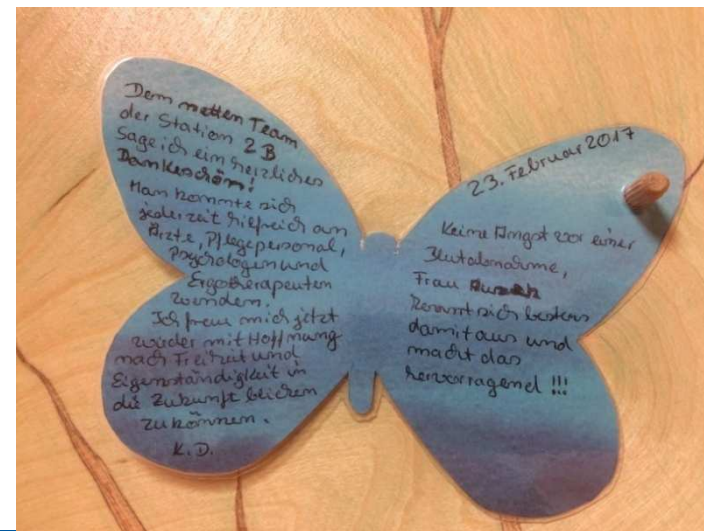 Dem netten Team
der Station 2B
sage ich ein herzliches
Dankeschön!
Man konnte sich
jederzeit hilfreich an
Ärzte, Pflegepersonal,
Psychologen und
Ergotherapeuten
wenden.
Ich freue mich jetzt
wieder mit Hoffnung
nach Freiheit und
Eigenständigkeit in
die Zukunft blicken
zu können.
K.D.
23. Februar 2017
Keine Angst vor einer
Blutabnahme,
Frau
kennt sich bestens
damit aus und
macht das
hervorragend!!!